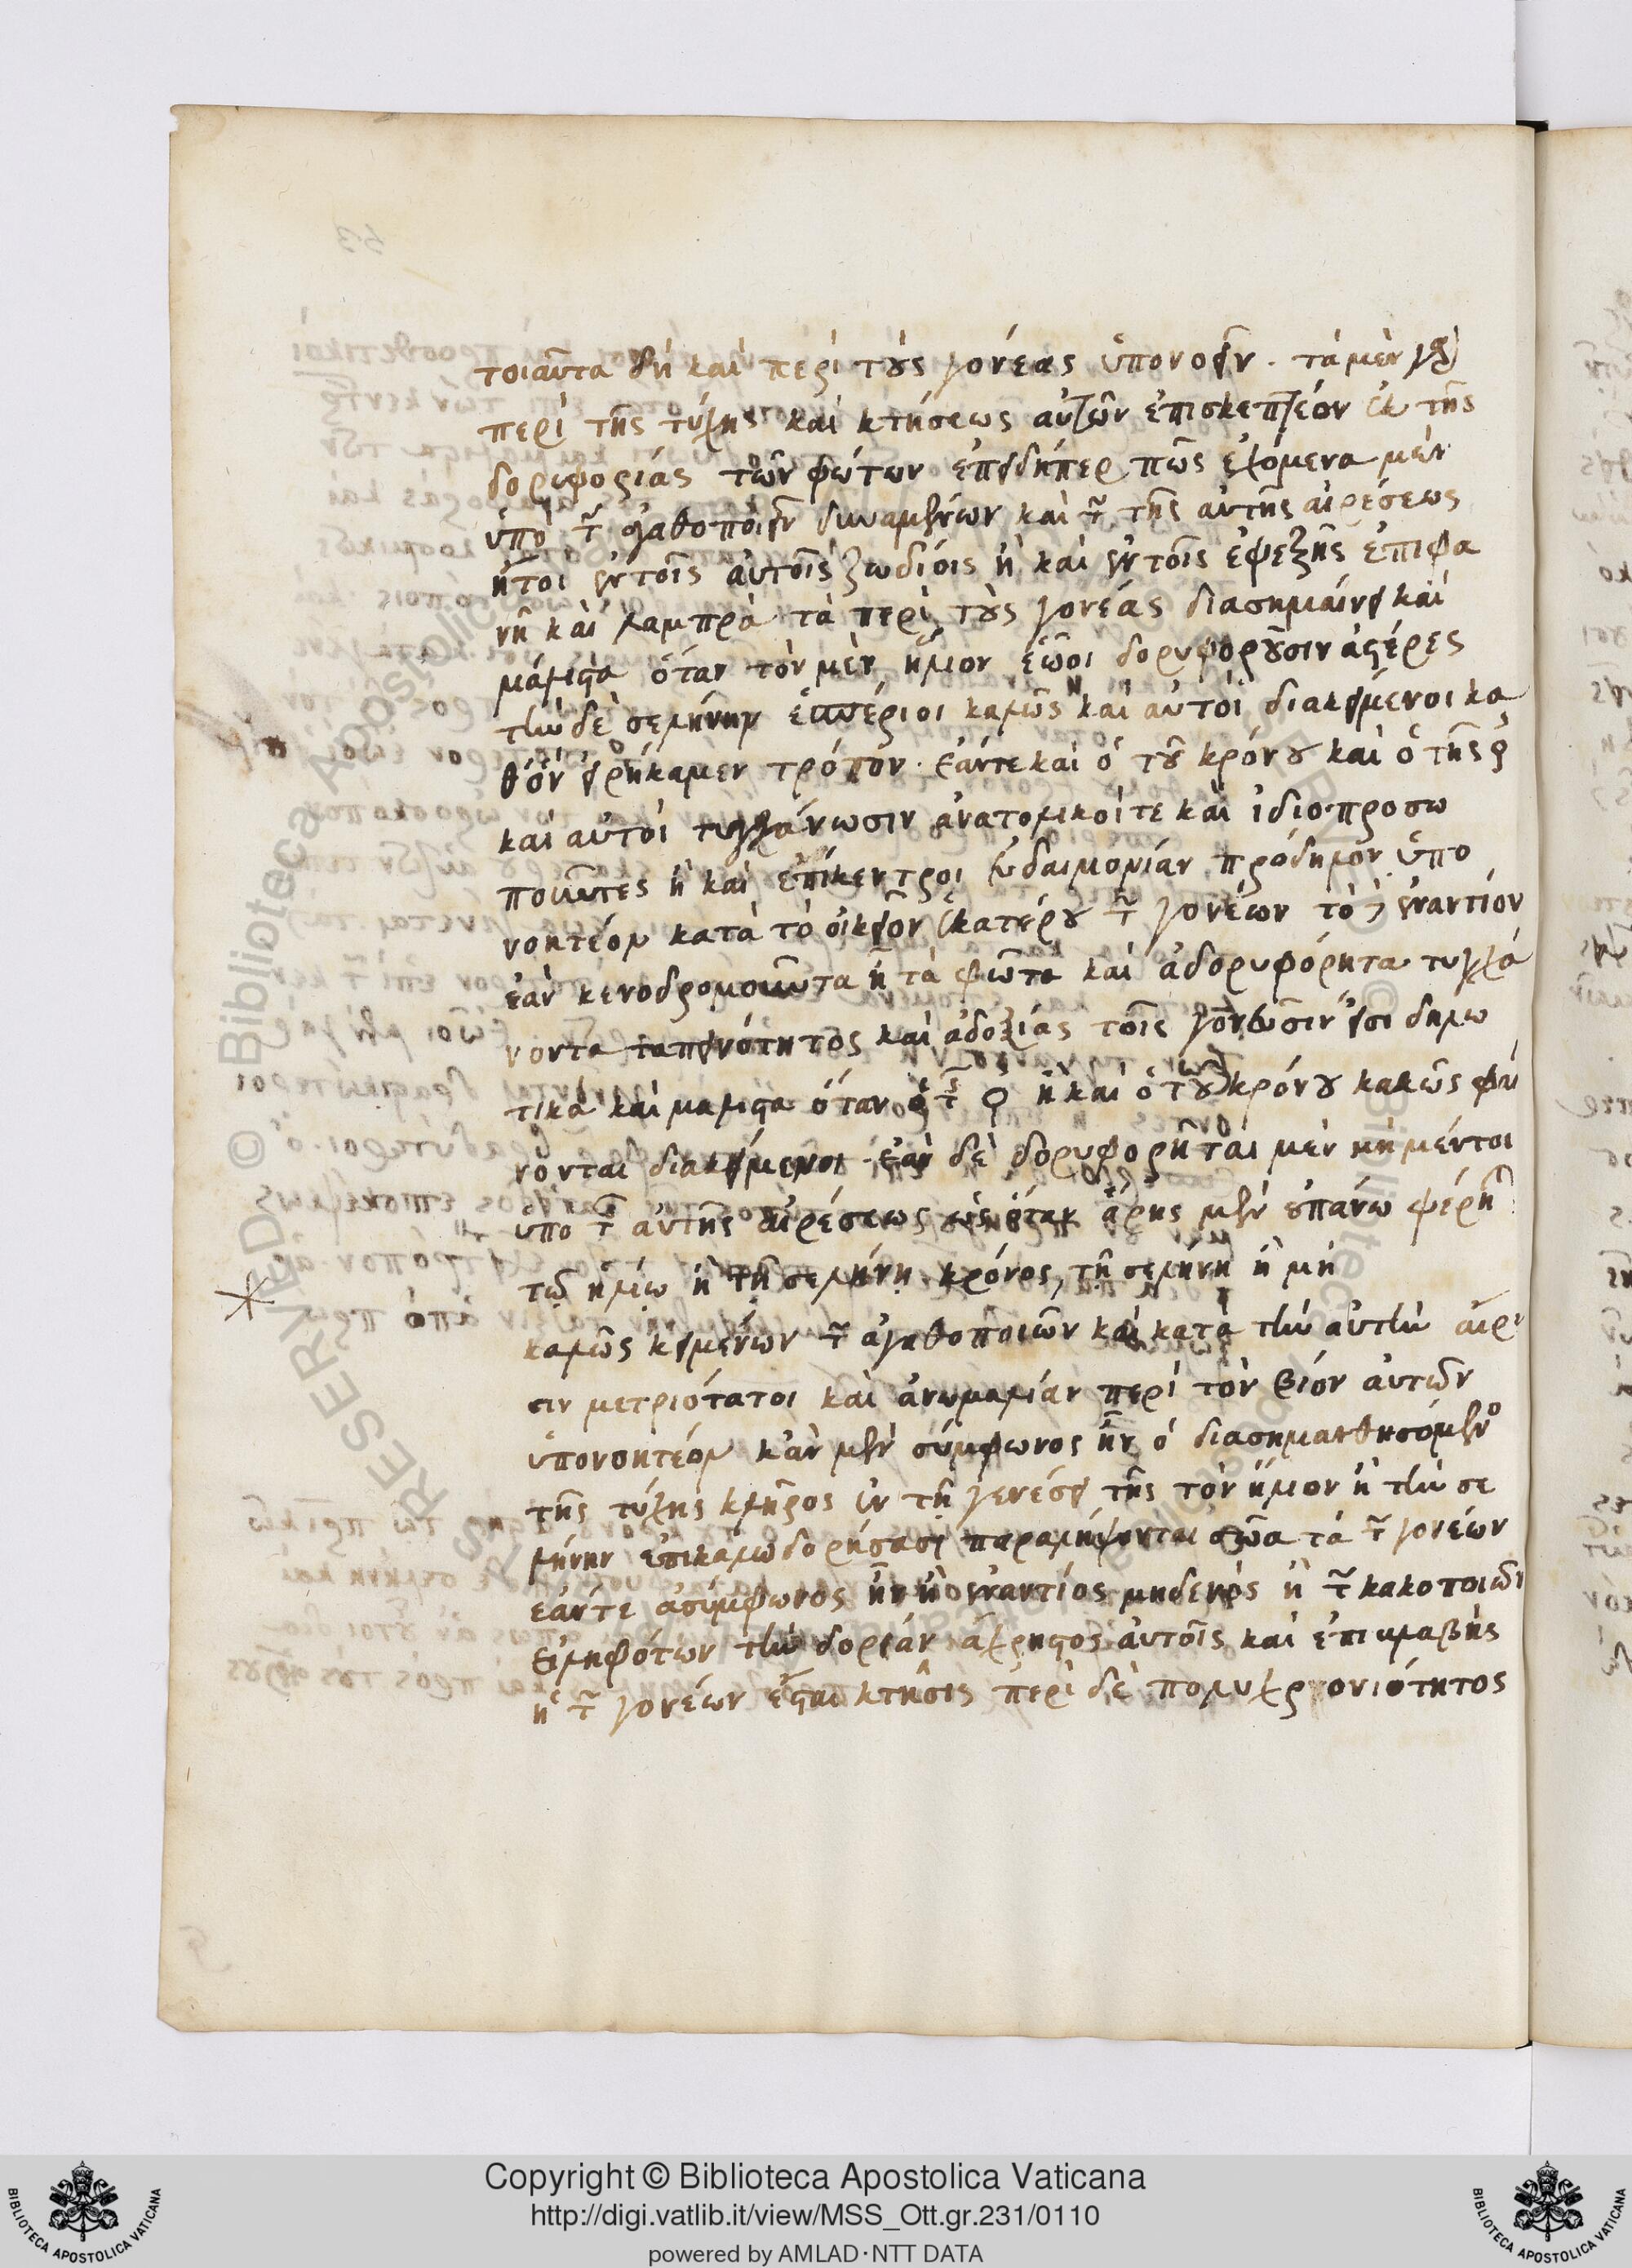 τοιαῦτα δὴ καὶ περὶ τοὺς γονέας ὑπονοεῖν. τὰ μὲν γὰρ
περὶ τῆς τύχης καὶ κτήσεως αὐτῶν ἐπισκεπτέον ἐκ τῆς
δορυφορίας τῶν φώτων ἐπειδήπερ πῶς ἐχόμενα μὲν
ὑπὸ τῶν ἀγαθοποιεῖν δυναμένων καὶ τῶν τῆς αὐτῆς αἱρέσεως
ἤτοι ἐν τοῖς αὐτοῖς ζωδίοις ἢ καὶ ἐν τοῖς ἐφεξῆς ἐπιφα
νῆ καὶ λαμπρὰ τὰ περὶ τοὺς γονέας διασημαίνει καὶ
μάλιστα ὅταν τὸν μὲν ἥλιον ἑῷοι δορυφοροῦσιν ἀστέρες
τὴν δὲ σελήνην ἑσπέριοι καλῶς καὶ αὐτοὶ διακείμενοι κα
θ' ὃν εἰρήκαμεν τρόπον. ἐάντε καὶ ὁ τοῦ κρόνου καὶ ὁ τῆς ♀
καὶ αὐτοὶ τυγχάνωσιν ἀνατολικοί τε καὶ ἰδιοπροσω
ποῦντες ἢ καὶ ἐπίκεντροι εὐδαιμονίαν πρόδηλον ὑπο
νοητέον κατὰ τὸ οἰκεῖον ἑκατέρου τῶν γονέων τὸ δὲ ἐναντίον
ἐὰν κενοδρομοῦντα ᾖ τὰ φῶτα καὶ ἀδορυφόρητα τυγχά
νοντα ταπεινότητος καὶ ἀδοξίας τοῖς γονεῦσιν εἰσι δηλω
τικὰ καὶ μάλιστα ὅταν ὁ τῆς ♀ ἢ καὶ ὁ τοῦ κρόνου κακῶς φαί
νονται διακείμενοι. ἐὰν δὲ δορυφορῆται μὲν μὴ μέντοι
ὑπὸ τῶν αὐτῆς αἱρέσεως ὡς ὅταν ἄρης μὲν ἐπανωφέρῃ
τῷ ἡλίῳ ἢ τῇ σελήνῃ κρόνος, τῇ σελήνῃ ἢ μὴ
καλῶς κειμένων τῶν ἀγαθοποιῶν καὶ κατὰ τὴν αὐτὴν αἵρε
σιν μετριότατοι καὶ ἀνωμαλίαν περὶ τὸν βίον αὐτῶν
ὑπονοητέον κἂν μὲν σύμφωνος ἦν ὁ διασημανθησόμενος
τῆς τύχης κλῆρος ἐν τῇ γενέσει τῆς τὸν ἥλιον ἢ τὴν σε
λήνην ἐπικαλωδορήσασι παραλήψονται σῶα τὰ τῶν γονέων
ἐάντε ἀσύμφωνος ἦν ἢ ἐναντίος μηδενὸς ἢ τῶν κακοποιῶν
εἰληφότων τὴν δορείαν ἄχρηστος αὐτοῖς καὶ ἐπιβλαβὴς
ἡ τῶν γονέων ἔσται κτῆσις περὶ δὲ πολυχρονιότητος
Copyright © Biblioteca Apostolica Vaticana
http://digi.vatlib.it/view/MSS_Ott.gr.231/0110
powered by AMLAD·NTT DATA